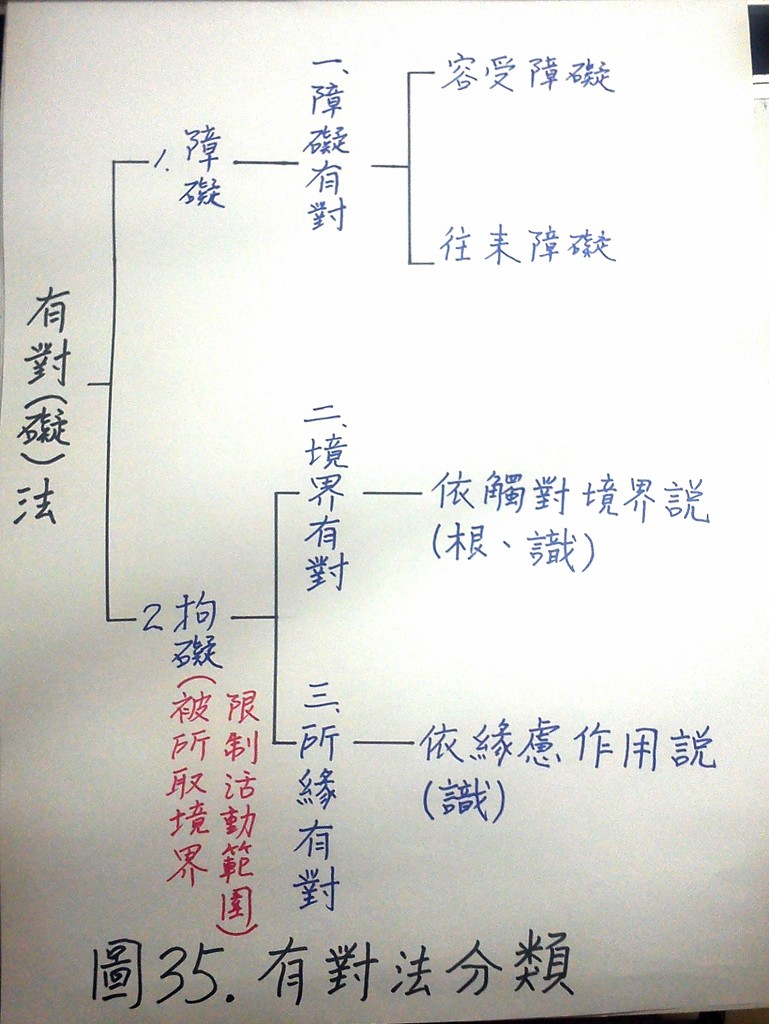 有對(礙)法
1.障礙
一、障礙有對
容受障礙
往来障礙
2.拘礙
(被所取境界
限制活動範圍)
二、境界有對
依觸對境界説
(根、識)
三、所緣有對
依緣慮作用説
(識)
圖35.有對法分類